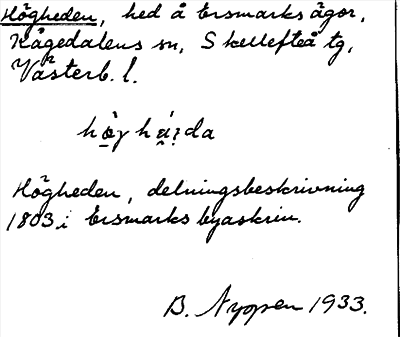 Högheden, hed å Ersmarks ägor,
Kågedalens sn, Skellefteå tg,
Västerb. l.
Högheden, delningsbeskrivning
1803 i Ersmarks byaskrin.
B. Nyopen 1933.